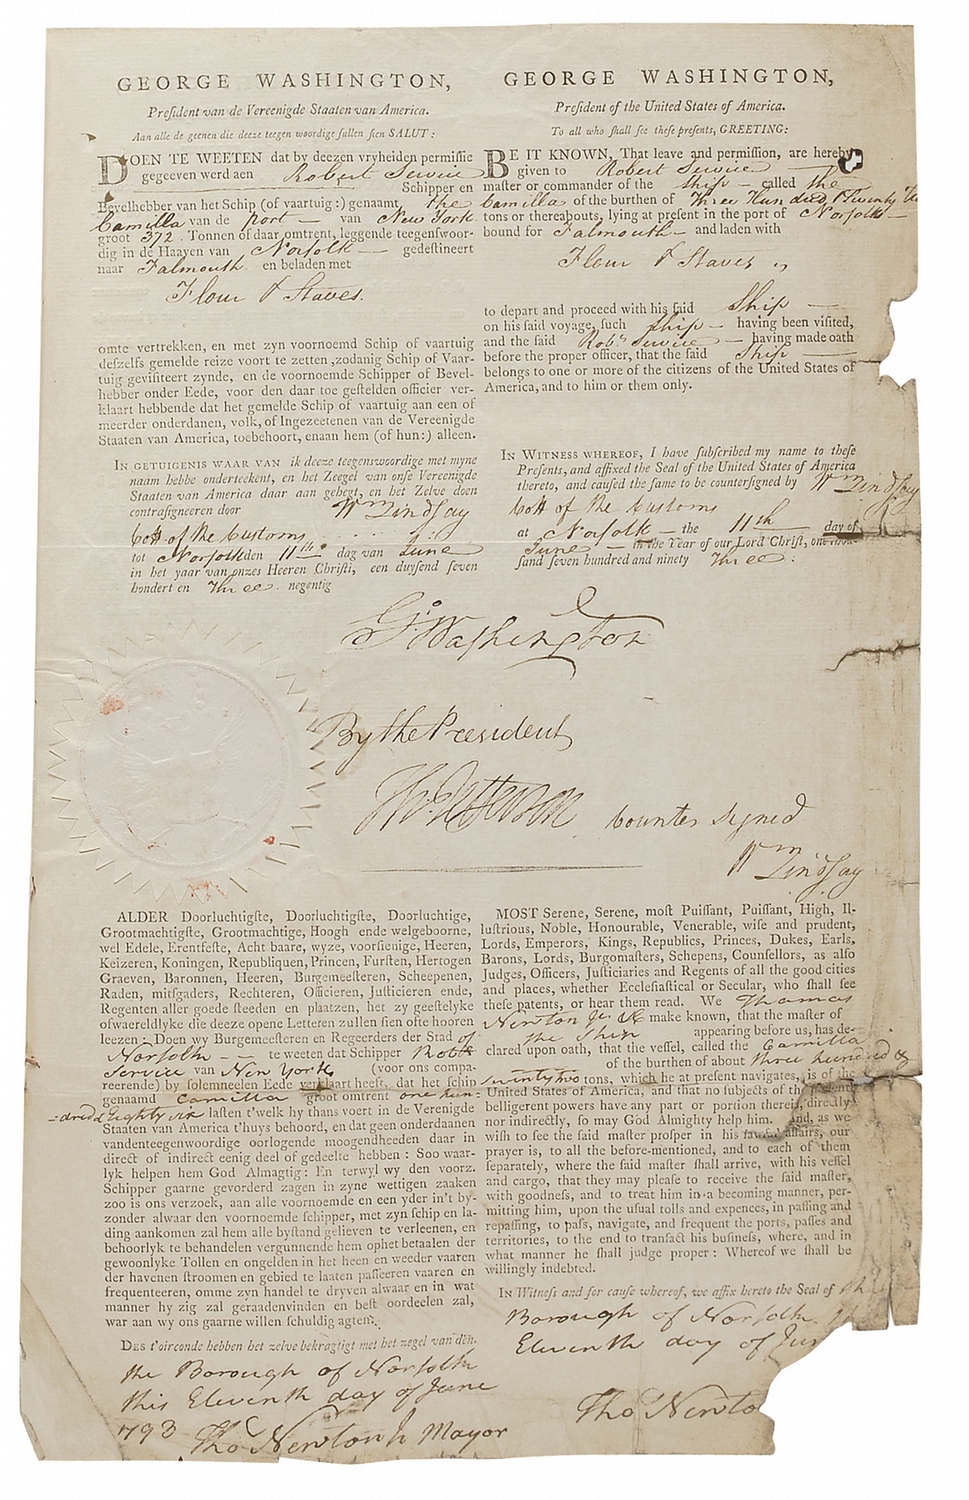 GEORGE WASHINGTON,
Preſident van de Vereenigde Staaten van America.
Aan alle de geenen die deeze teegen woordige ſullen ſien SALUT:
DOEN TE WEETEN dat by deezen vryheiden permiſſie
gegeeven werd aen Robert Service
Schipper en
Bevelhebber van het Schip (of vaartuig:) genaamt the
Camilla van de Port — van New York
groot 372. Tonnen of daar omtrent, leggende teegenſwoor-
dig in de Haaven van Norfolk — gedeſtineert
naar Falmouth en beladen met
Flour & Staves.
omte vertrekken, en met zyn voornemd Schip of vaartuig
deſzelfs gemelde reize voort te zetten, zodanig Schip of Vaar-
tuig geviſiteert zynde, en de voornoemde Schipper of Bevel-
hebber onder Eede, voor den daar toe geſtelden officier ver-
klaart hebbende dat het gemelde Schip of vaartuig aan een of
meerder onderdanen, volk, of Ingezeetenen van de Vereenigde
Staaten van America, toebehoort, enaan hem (of hun:) alleen.
IN GETUIGENIS WAAR VAN ik deeze teegenswoordige met myne
naam hebbe onderteekent, en het Zeegel van onſe Vereenigde
Staaten van America daar aan gehegt, en het Zelve doen
contraſigneeren door Wm Lindsay
Coll of the Customs
tot Norfolk den 11th. dag van June
in het yaar van onzes Heeren Chriſti, een duyſend ſeven
hondert en Three negentig
GEORGE WASHINGTON,
Preſident of the United States of America.
To all who ſhall ſee theſe preſents, GREETING:
BE IT KNOWN, That leave and permiſſion, are hereby
given to Robert Service
maſter or commander of the Ship — called the
Camilla of the burthen of Three Hundred & Twenty Two
tons or thereabouts, lying at preſent in the port of Norfolk —
bound for Falmouth — and laden with
Flour & Staves
to depart and proceed with his ſaid Ship —
on his ſaid voyage, ſuch Ship — having been viſited,
and the ſaid Robt. Service — having made oath
before the proper officer, that the ſaid Ship —
belongs to one or more of the citizens of the United States of
America, and to him or them only.
IN WITNESS WHEREOF, I have ſubſcribed my name to theſe
Preſents, and affixed the Seal of the United States of America
thereto, and cauſed the ſame to be counterſigned by Wm Lindsay
Coll of the Customs
at Norfolk — the 11th day of
June — in the Year of our Lord Chriſt, one thou-
ſand ſeven hundred and ninety Three.
Go. Washington
By the President
Th: Jefferson
Counter Signed
Wm Lindsay
ALDER Doorluchtigſte, Doorluchtigſte, Doorluchtige,
Grootmachtigſte, Grootmachtige, Hoogh ende welgeboorne,
wel Edele, Erentfeſte, Acht baare, wyze, voorſienige, Heeren,
Keizeren, Koningen, Republiquen, Princen, Furſten, Hertogen
Graeven, Baronnen, Heeren, Burgemeeſteren, Scheepenen,
Raden, mitſgaders, Rechteren, Officieren, Juſticieren ende,
Regenten aller goede ſteeden en plaatzen, het zy geeſtelyke
ofwaereldlyke die deeze opene Letteren zullen ſien ofte hooren
leezen: Doen wy Burgemeeſteren en Regeerders der Stad of
Norfolk — te weeten dat Schipper Robt
Service van New York (voor ons compa-
reerende) by ſolemneelen Eede verklaart heeft, dat het ſchip
genaamd Camilla groot omtrent one hun-
=dred & Eighty six laſten t'welk hy thans voert in de Verenigde
Staaten van America t'huys behoord, en dat geen onderdaanen
vandenteegenwoordige oorlogende moogendheeden daar in
direct of indirect eenig deel of gedeelte hebben: Soo waar-
lyk helpen hem God Almagtig: En terwyl wy den voorz.
Schipper gaarne gevorderd zagen in zyne wettigen zaaken
zoo is ons verzoek, aan alle voornoemde en een yder in't by-
zonder alwaar den voornoemde ſchipper, met zyn ſchip en la-
ding aankomen zal hem alle byſtand gelieven te verleenen, en
behoorlyk te behandelen vergunnende hem ophet betaalen der
gewoonlyke Tollen en ongelden in het heen en weeder vaaren
der havenen ſtroomen en gebied te laaten paſſeeren vaaren en
frequenteeren, omme zyn handel te dryven alwaar en in wat
manner hy zig zal geraadenvinden en beſt oordeelen zal,
war aan wy ons gaarne willen ſchuldig agten.
DES t'oirconde hebben het zelve bekragtigt met het zegel van dèn.
the Borough of Norfolk
this Eleventh day of June
793 Tho Newton Jr Mayor
MOST Serene, Serene, moſt Puiſſant, Puiſſant, High, Il-
luſtrious, Noble, Honourable, Venerable, wiſe and prudent,
Lords, Emperors, Kings, Republics, Princes, Dukes, Earls,
Barons, Lords, Burgomaſters, Schepens, Counſellors, as alſo
Judges, Officers, Juſticiaries and Regents of all the good cities
and places, whether Eccleſiaſtical or Secular, who ſhall ſee
theſe patents, or hear them read. We Thomas
Newton Jr. make known, that the maſter of
the Ship appearing before us, has de-
clared upon oath, that the veſſel, called the Camilla
of the burthen of about Three hundred &
twentytwo tons, which he at preſent navigates, is of the
United States of America, and that no ſubjects of the preſent
belligerent powers have any part or portion therein, directly
nor indirectly, ſo may God Almighty help him. And, as we
wiſh to ſee the ſaid maſter proſper in his lawful affairs, our
prayer is, to all the before-mentioned, and to each of them
ſeparately, where the ſaid maſter ſhall arrive, with his veſſel
and cargo, that they may pleaſe to receive the ſaid maſter,
with goodneſs, and to treat him in a becoming manner, per-
mitting him, upon the uſual tolls and expences, in paſſing and
repaſſing, to paſs, navigate, and frequent the ports, paſſes and
territories, to the end to tranſact his buſineſs, where, and in
what manner he ſhall judge proper: Whereof we ſhall be
willingly indebted.
In Witneſs and for cauſe whereof, we affix hereto the Seal of the
Borough of Norfolk
Eleventh day of Jun
Tho Newto